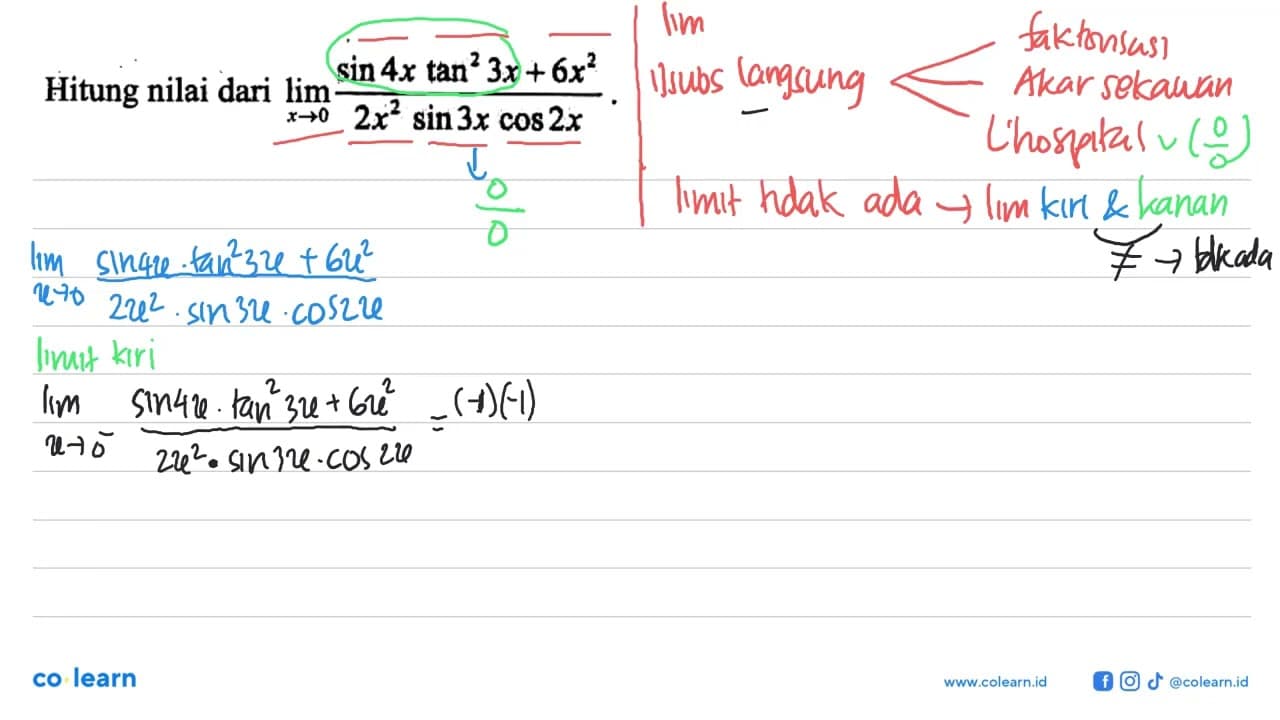 Hitung nilai dari lim x→0 (sin 4x tan² 3x + 6x²)/(2x² sin 3x cos 2x).
0/0
lim
1) subs langsung
faktorisasi
Akar sekawan
L'hospital ✓ (0/0)
limit tidak ada → lim kiri & kanan
≠ → tdk ada
lim x→0 (sin4x . tan²3x + 6x²)/(2x² . sin 3x . cos2x)
limit kiri
lim x→0⁻ (sin4x . tan²3x + 6x²)/(2x² . sin 3x . cos 2x) = (-1)(-1)
co learn
www.colearn.id
@colearn.id